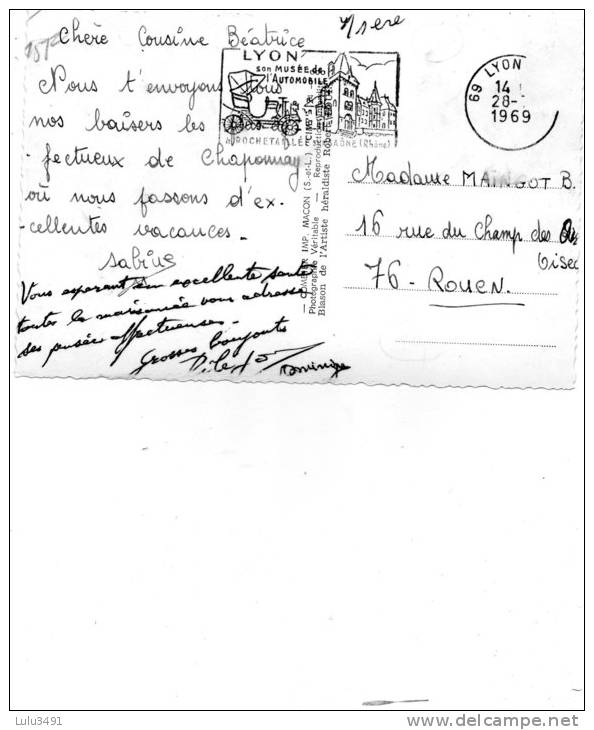 Isère
Chère Cousine Béatrice
Nous t'envoyons tous
nos baisers les
fectueux de Chaponnay
où nous passons d'ex-
-cellentes vacances.
Sabine
Vous esperant en excellente santé
toute la maisonnée vous adresse
ses pensées affectueuses.
Grosses
LYON
son MUSÉE de
l'AUTOMOBILE
ROCHETAILLÉE S/ SAÔNE (Rhône)
69 LYON
14
28-
1969
— COMBIER IMP. MACON (S.-et-L.) "CIM" —
Photographie Véritable — Reproduction
Blason de l'Artiste héraldiste Robert
Madame MAINGOT B.
16 rue du Champ des
Oisea
76 - ROUEN.
Lulu3491
www.delcampe.net